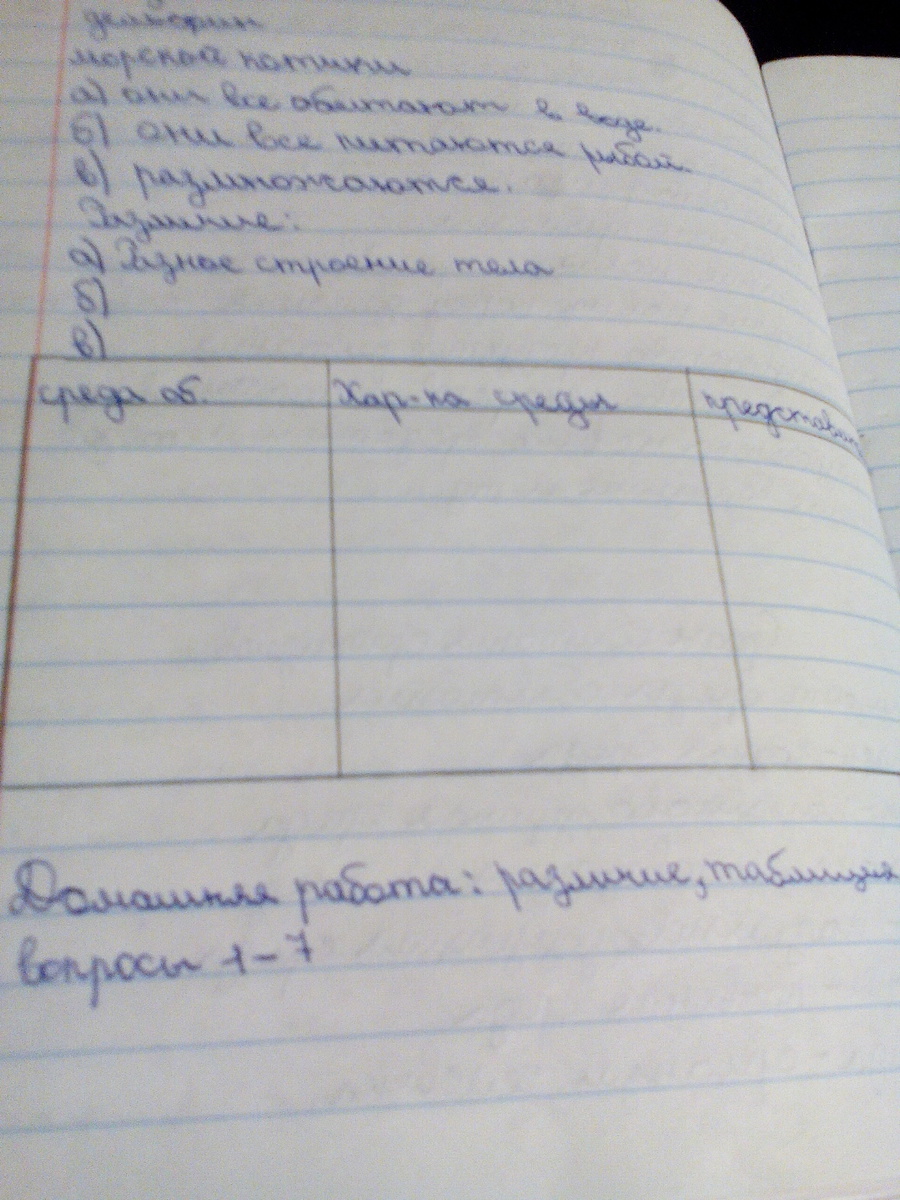 дельфин
морской котики
а) они все обитают в воде.
б) они все питаются рыбой.
в) размножаются.
Различие:
а) Разное строение тела
б)
в)
среда об. Хар-ка среды представит
Домашняя работа: различие, таблица
вопросы 1-7